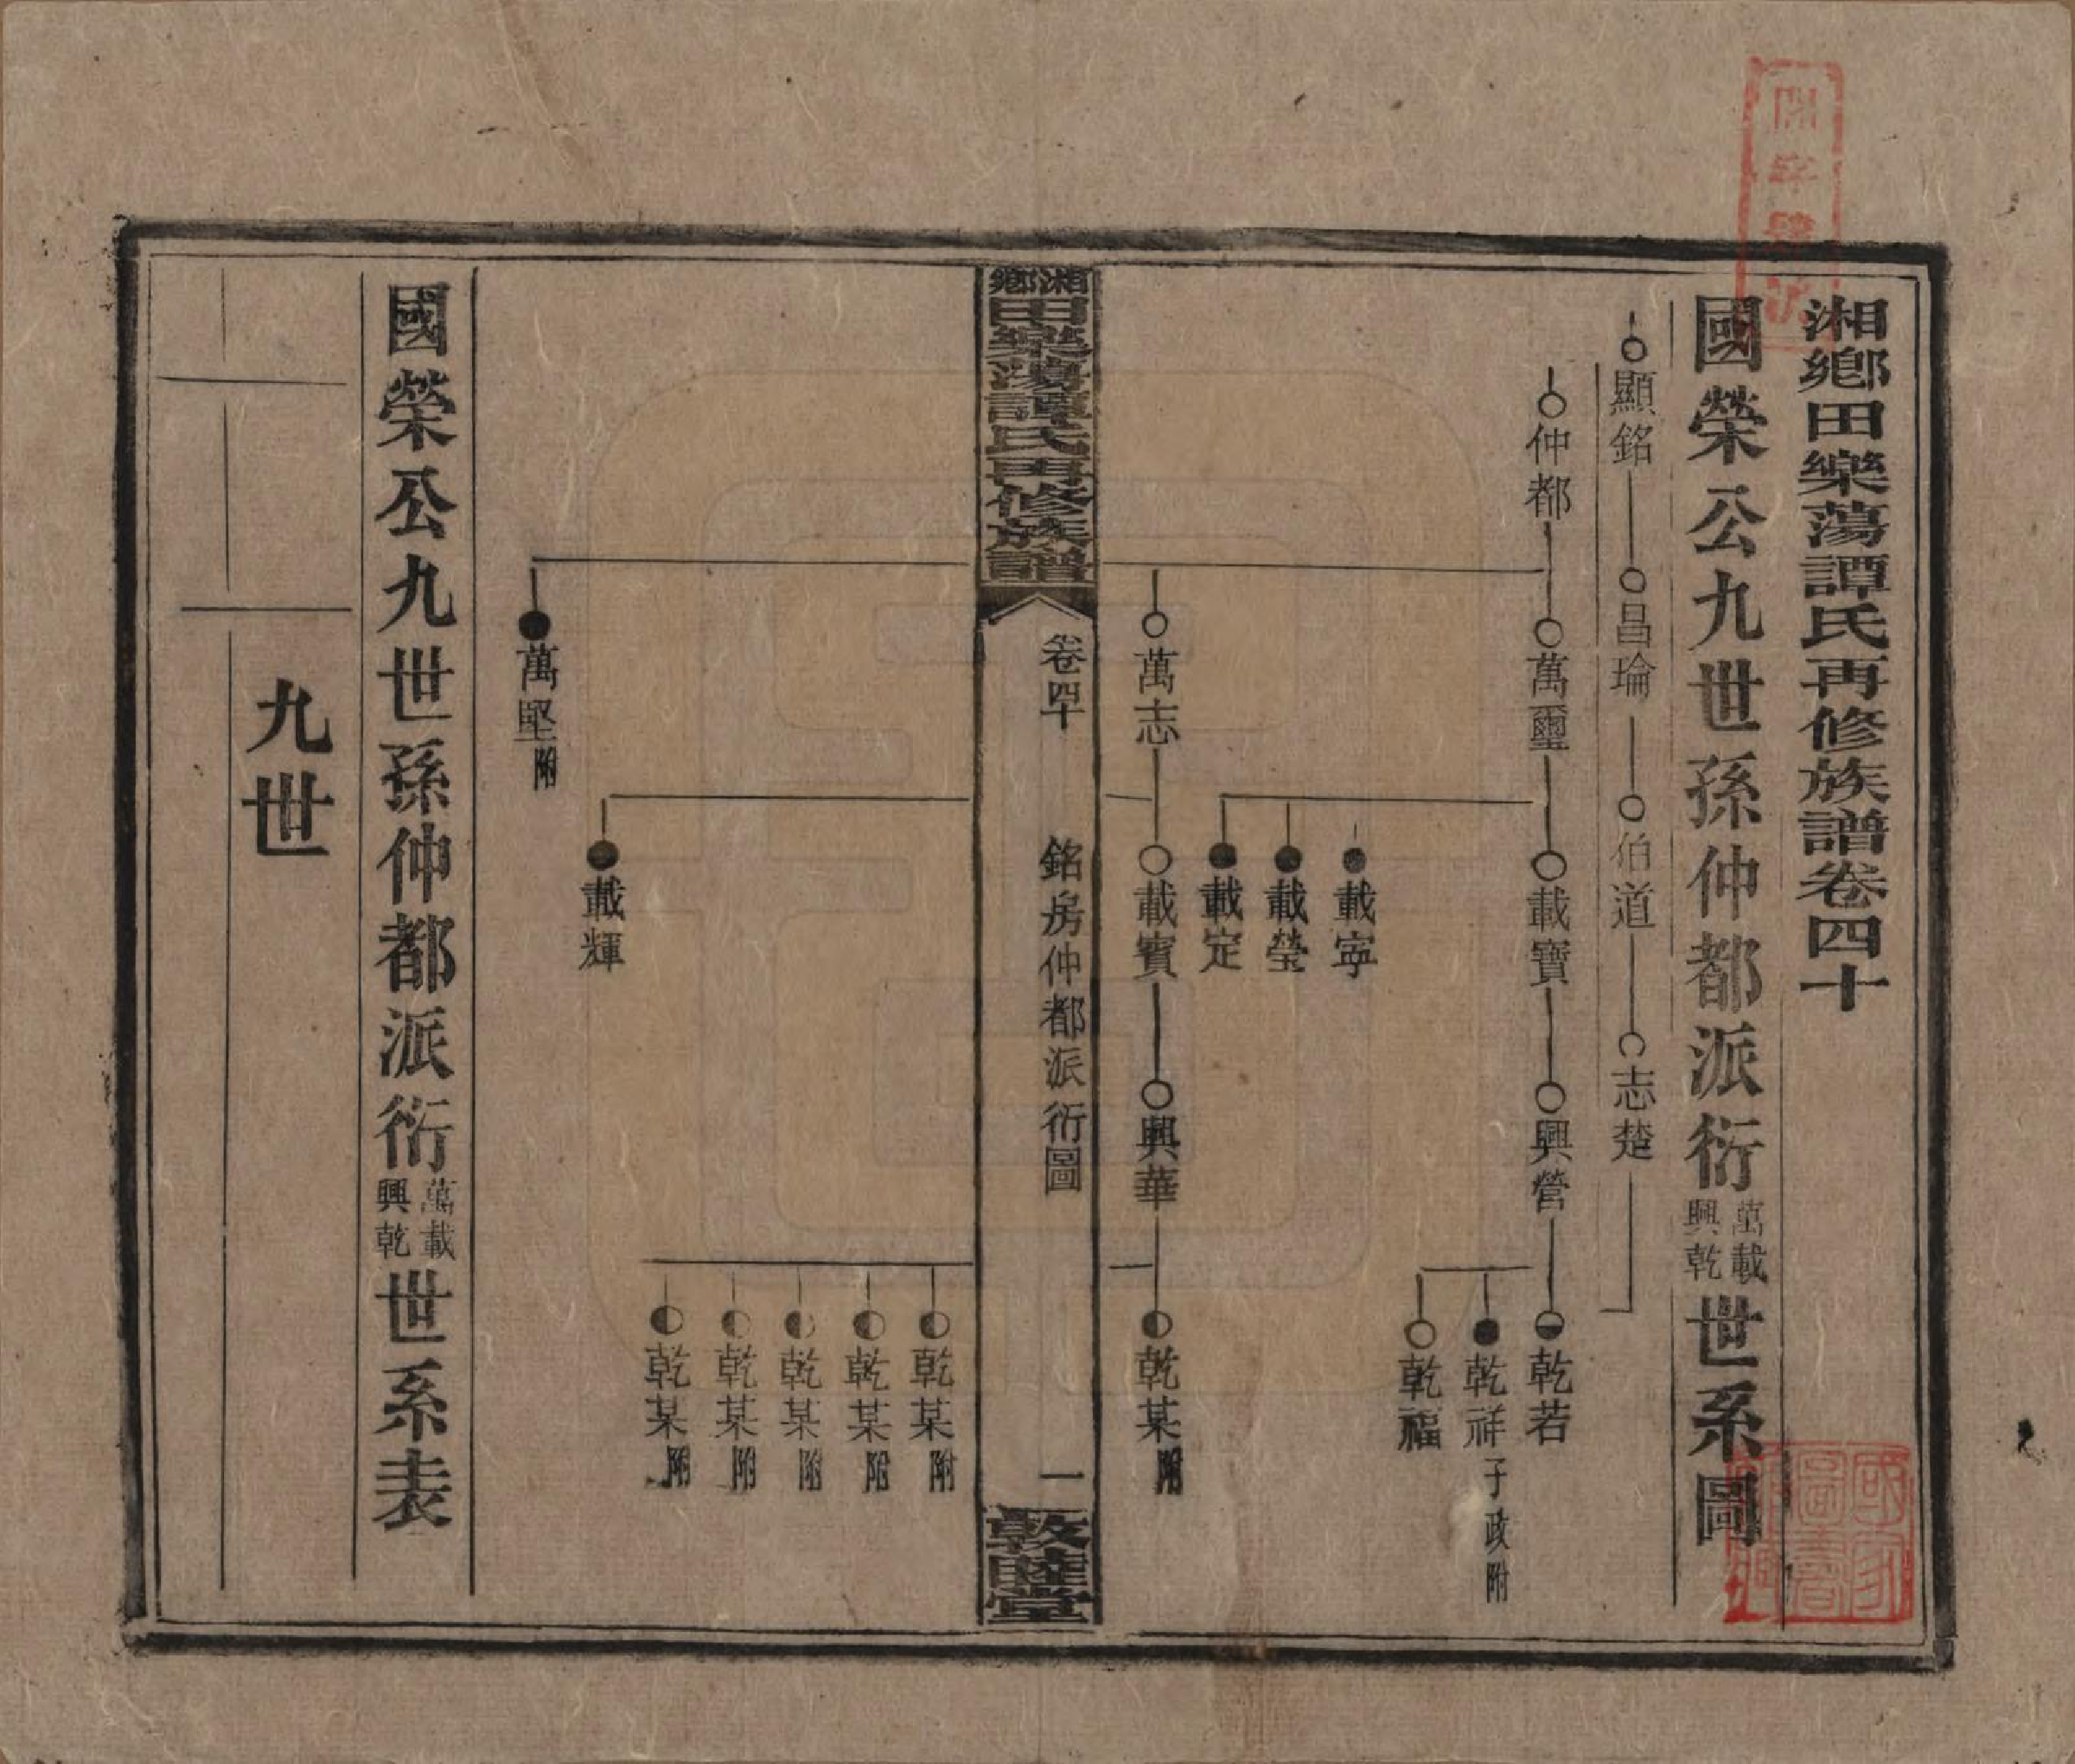 湘鄉田樂蕩譚氏再修族譜卷四十
國榮公九世孫仲都派衍萬載興乾世系圖
顯銘 昌瑜 伯道 志楚
仲都 萬璽 載寶 興營 乾若
乾祥子政附
乾福
載寧
載瑩
載定
萬志 載賓 興華 乾某附
湘鄉田樂蕩譚氏再修族譜 卷四十 銘房仲都派衍圖 一 敦睦堂
乾某附
乾某附
乾某附
乾某附
乾某附
載輝
萬堅附
國榮公九世孫仲都派衍萬載興乾世系表
九世